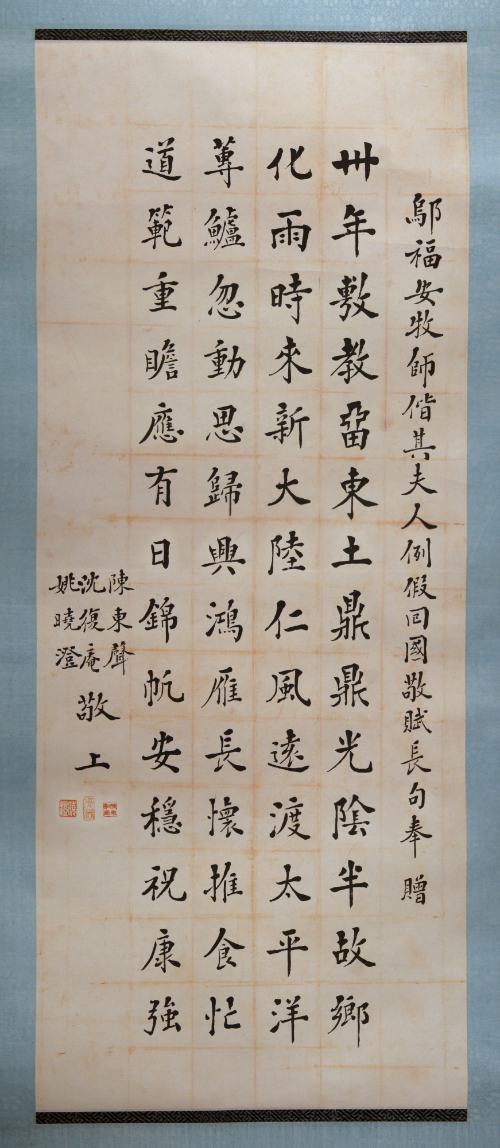 鄔福安牧師偕其夫人例假回國敬賦長句奉贈
卅年敷教畱東土鼎鼎光陰半故鄉
化雨時來新大陸仁風遠渡太平洋
蓴鱸忽動思歸興鴻雁長懷推食忙
道範重瞻應有日錦帆安穩祝康強
陳東聲
沈復庵
姚曉澄
敬上